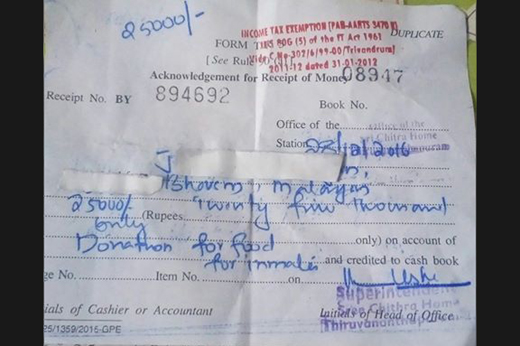 25000/-
INCOME TAX EXEMPTION [PAN-AARTS 3470
FORM DUPLICATE
80G (5) of the IT Act 1961
[See Rule
2011-12 dated 31-01-2012
Acknowledgement for Receipt of Money 08947
Receipt No. BY 894692 Book No.
Office of the
Station 2016
J
Bhavan, Malayan
25000/- Twenty five thousand
only (Rupees
Donation for food only) on account of
for inmates and credited to cash book
ge No. Item No. on
Superintendent
Sree Chithra Home
Thiruvananthapuram
ials of Cashier or Accountant Initials of Head of Office
25/1359/2015-GPE